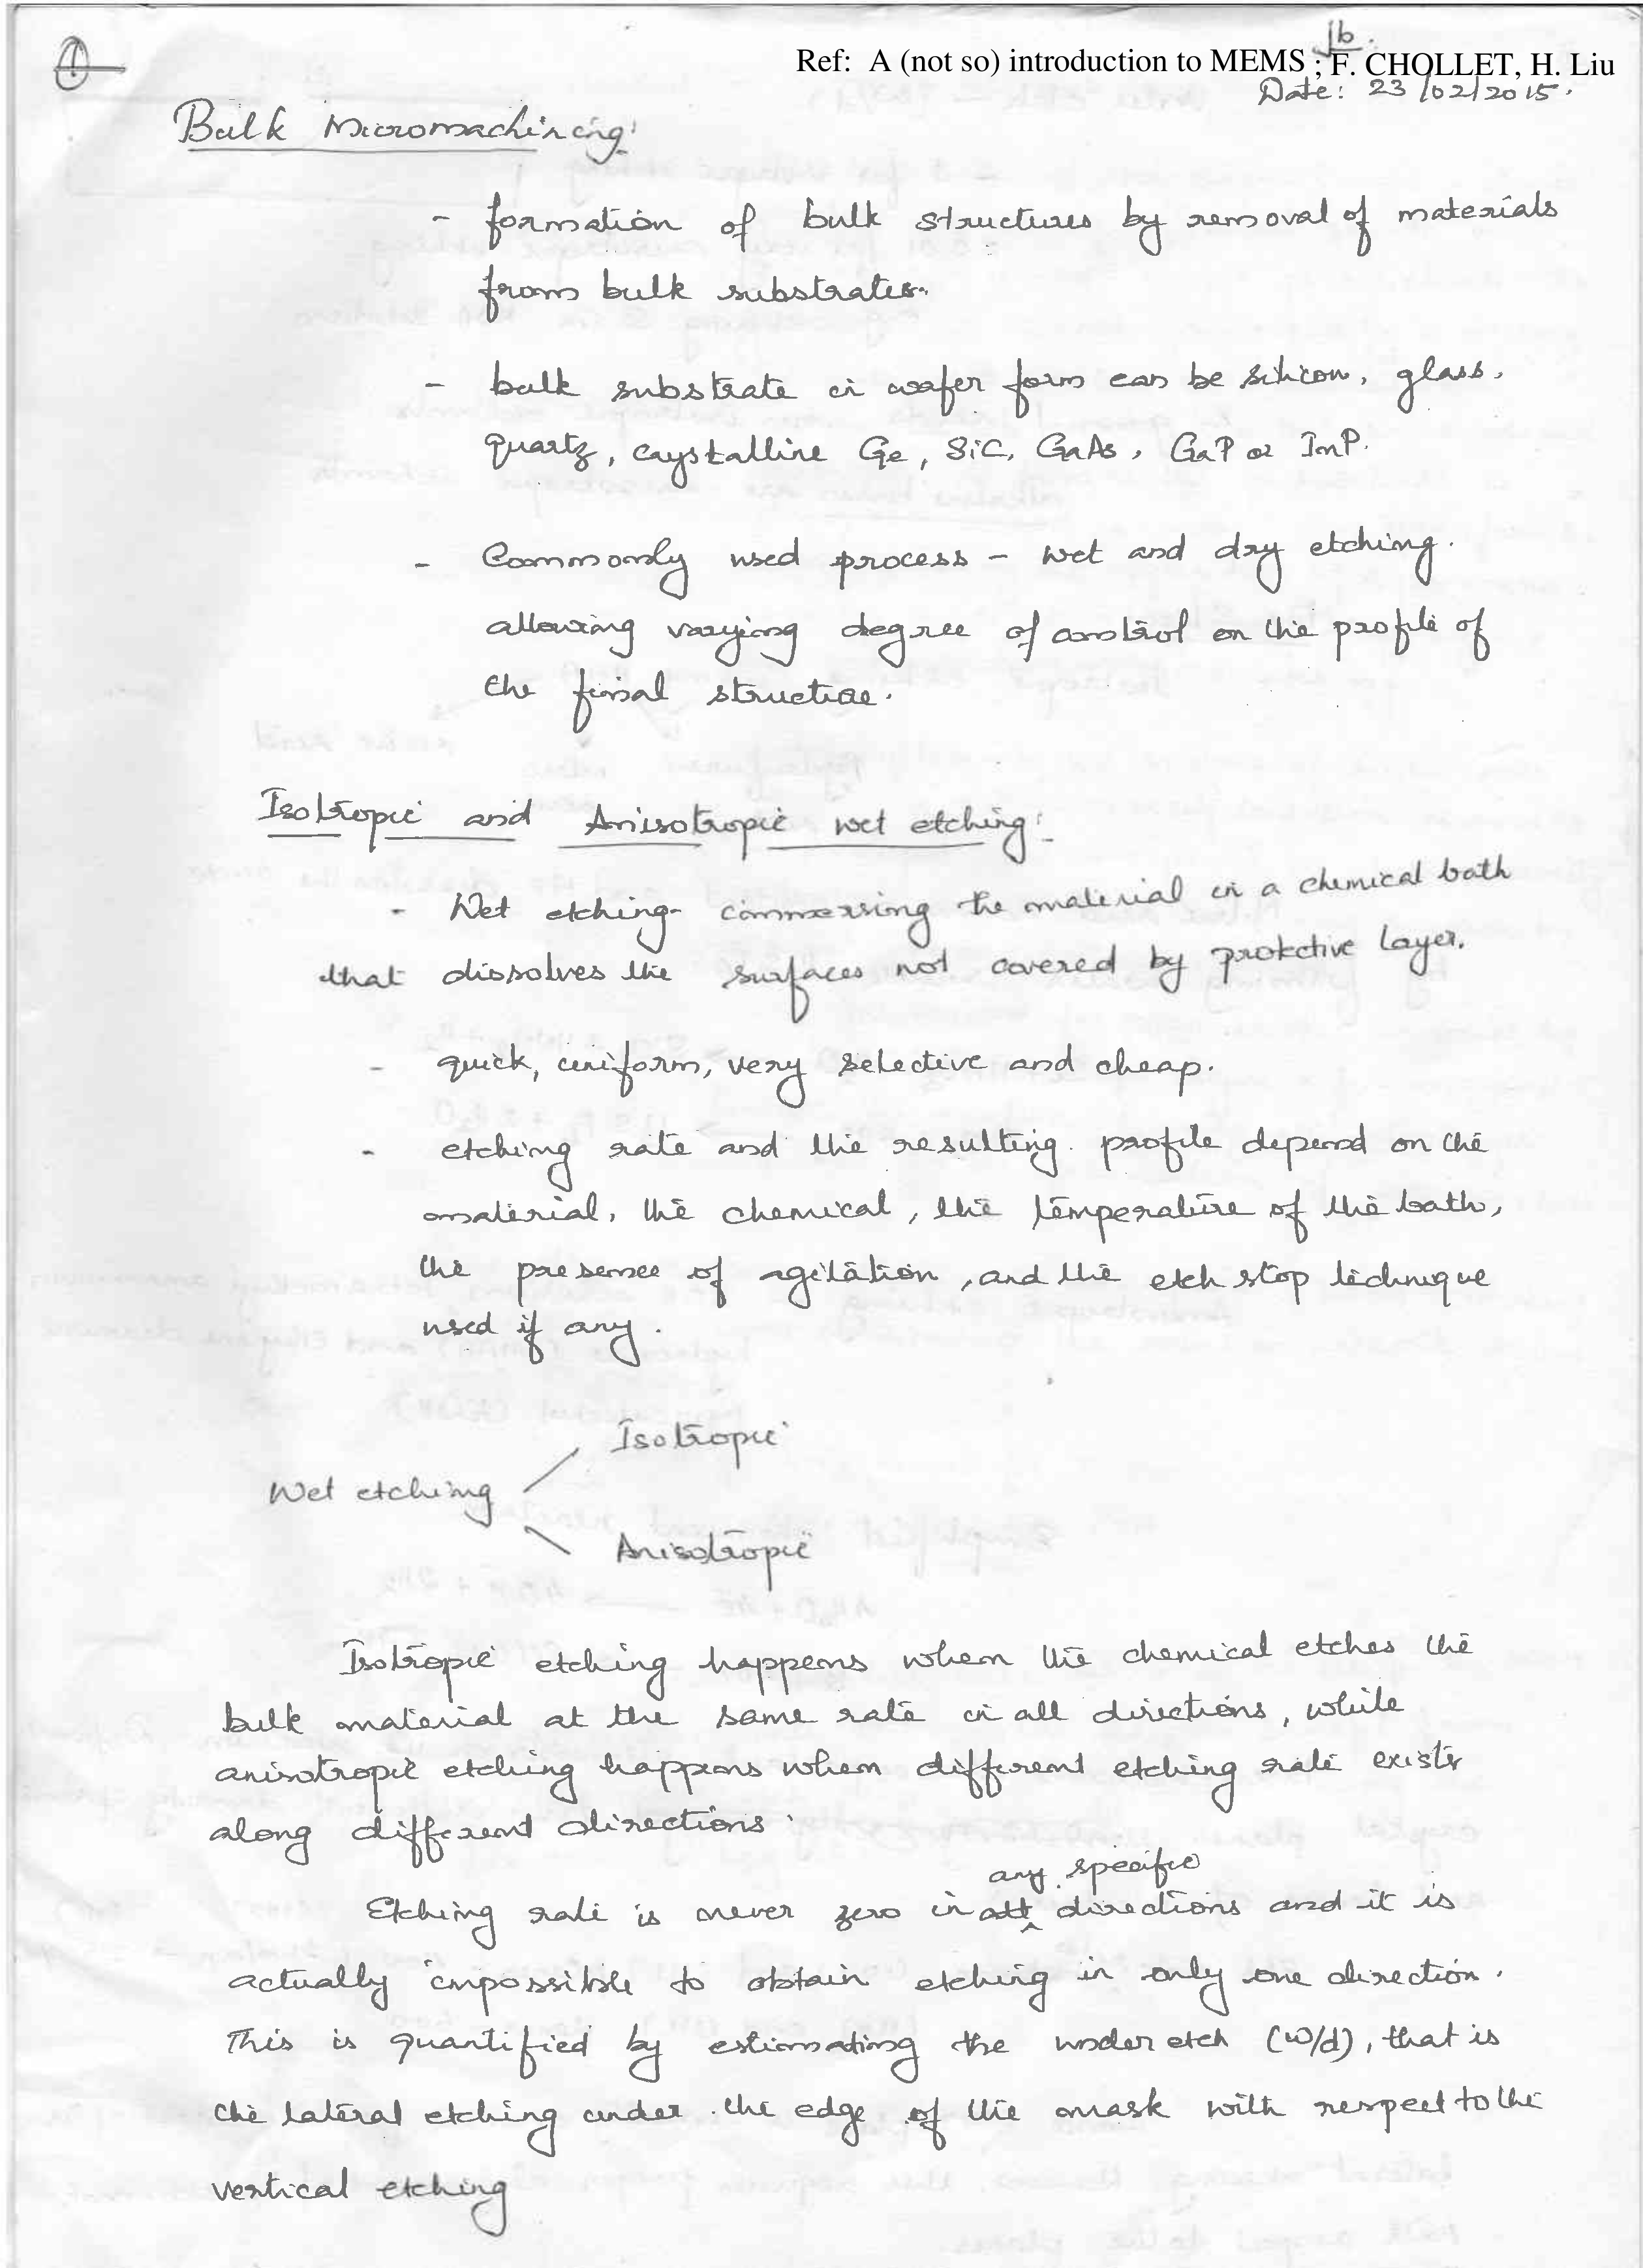 1
16.
Ref: A (not so) introduction to MEMS ; F. CHOLLET, H. Liu
Date: 23/02/2015.
Bulk Micromachining:
- formation of bulk structures by removal of materials
from bulk substrates.
- bulk substrate in wafer form can be silicon, glass,
quartz, crystalline Ge, SiC, GaAs, GaP or InP.
- Commonly used process - wet and dry etching.
allowing varying degree of control on the profile of
the final structure.
Isotropic and Anisotropic wet etching:
- Wet etching- immersing the material in a chemical bath
that dissolves the surfaces not covered by protective layer.
- quick, uniform, very selective and cheap.
- etching rate and the resulting profile depend on the
material, the chemical, the temperature of the bath,
the presence of agitation, and the etch stop technique
used if any.
Isotropic
Wet etching
Anisotropic
Isotropic etching happens when the chemical etches the
bulk material at the same rate in all directions, while
anisotropic etching happens when different etching rate exists
along different directions.
any specific
Etching rate is never zero in all directions and it is
actually impossible to obtain etching in only one direction.
This is quantified by estimating the under etch (w/d), that is
the lateral etching under the edge of the mask with respect to the
vertical etching